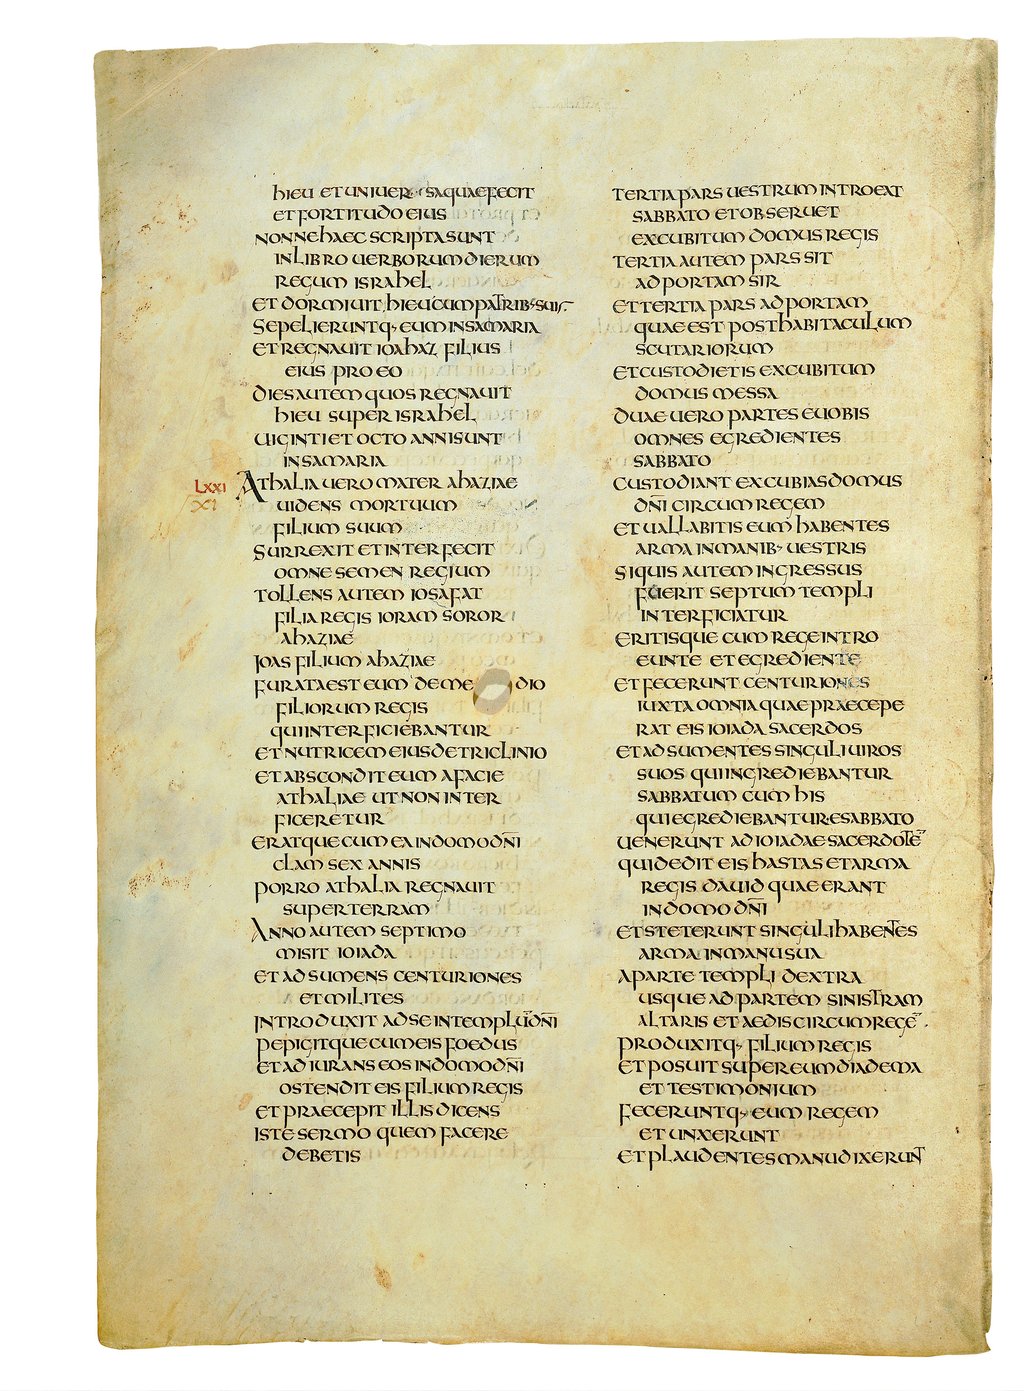 hieu et uniuersa quae fecit
et fortitudo eius
nonne haec scripta sunt
in libro uerborum dierum
regum israhel
et dormiuit hieu cum patrib· suis
sepelieruntq· eum in samaria
et regnauit ioahaz filius
eius pro eo
dies autem quos regnauit
hieu super israhel
uiginti et octo anni sunt
in samaria
LXXI
XI
Athalia uero mater ahaziae
uidens mortuum
filium suum
surrexit et interfecit
omne semen regium
tollens autem iosafat
filia regis ioram soror
ahaziae
ioas filium ahaziae
furata est eum de medio
filiorum regis
qui interficiebantur
et nutricem eius de triclinio
et abscondit eum a facie
athaliae ut non inter
ficeretur
eratque cum ea in domo dñi
clam sex annis
porro athalia regnauit
super terram
Anno autem septimo
misit ioiada
et adsumens centuriones
et milites
introduxit ad se in templū dñi
pepigitque cum eis foedus
et adiurans eos in domo dñi
ostendit eis filium regis
et praecepit illis dicens
iste sermo quem facere
debetis
tertia pars uestrum introeat
sabbato et obseruet
excubitum domus regis
tertia autem pars sit
ad portam sir
et tertia pars ad portam
quae est post habitaculum
scutariorum
et custodietis excubitum
domus messa
duae uero partes e uobis
omnes egredientes
sabbato
custodiant excubias domus
dñi circum regem
et uallabitis eum habentes
arma in manib· uestris
siquis autem ingressus
fuerit septum templi
interficiatur
eritisque cum rege intro
eunte et egrediente
et fecerunt centuriones
iuxta omnia quae praecepe
rat eis ioiada sacerdos
et adsumentes singuli uiros
suos qui ingrediebantur
sabbatum cum his
qui egrediebantur e sabbato
uenerunt ad ioiadae sacerdotē
qui dedit eis hastas et arma
regis dauid quae erant
in domo dñi
et steterunt singuli habentes
arma in manu sua
a parte templi dextra
usque ad partem sinistram
altaris et aedis circum regē
produxitq· filium regis
et posuit super eum diadema
et testimonium
feceruntq· eum regem
et unxerunt
et plaudentes manu dixerunt